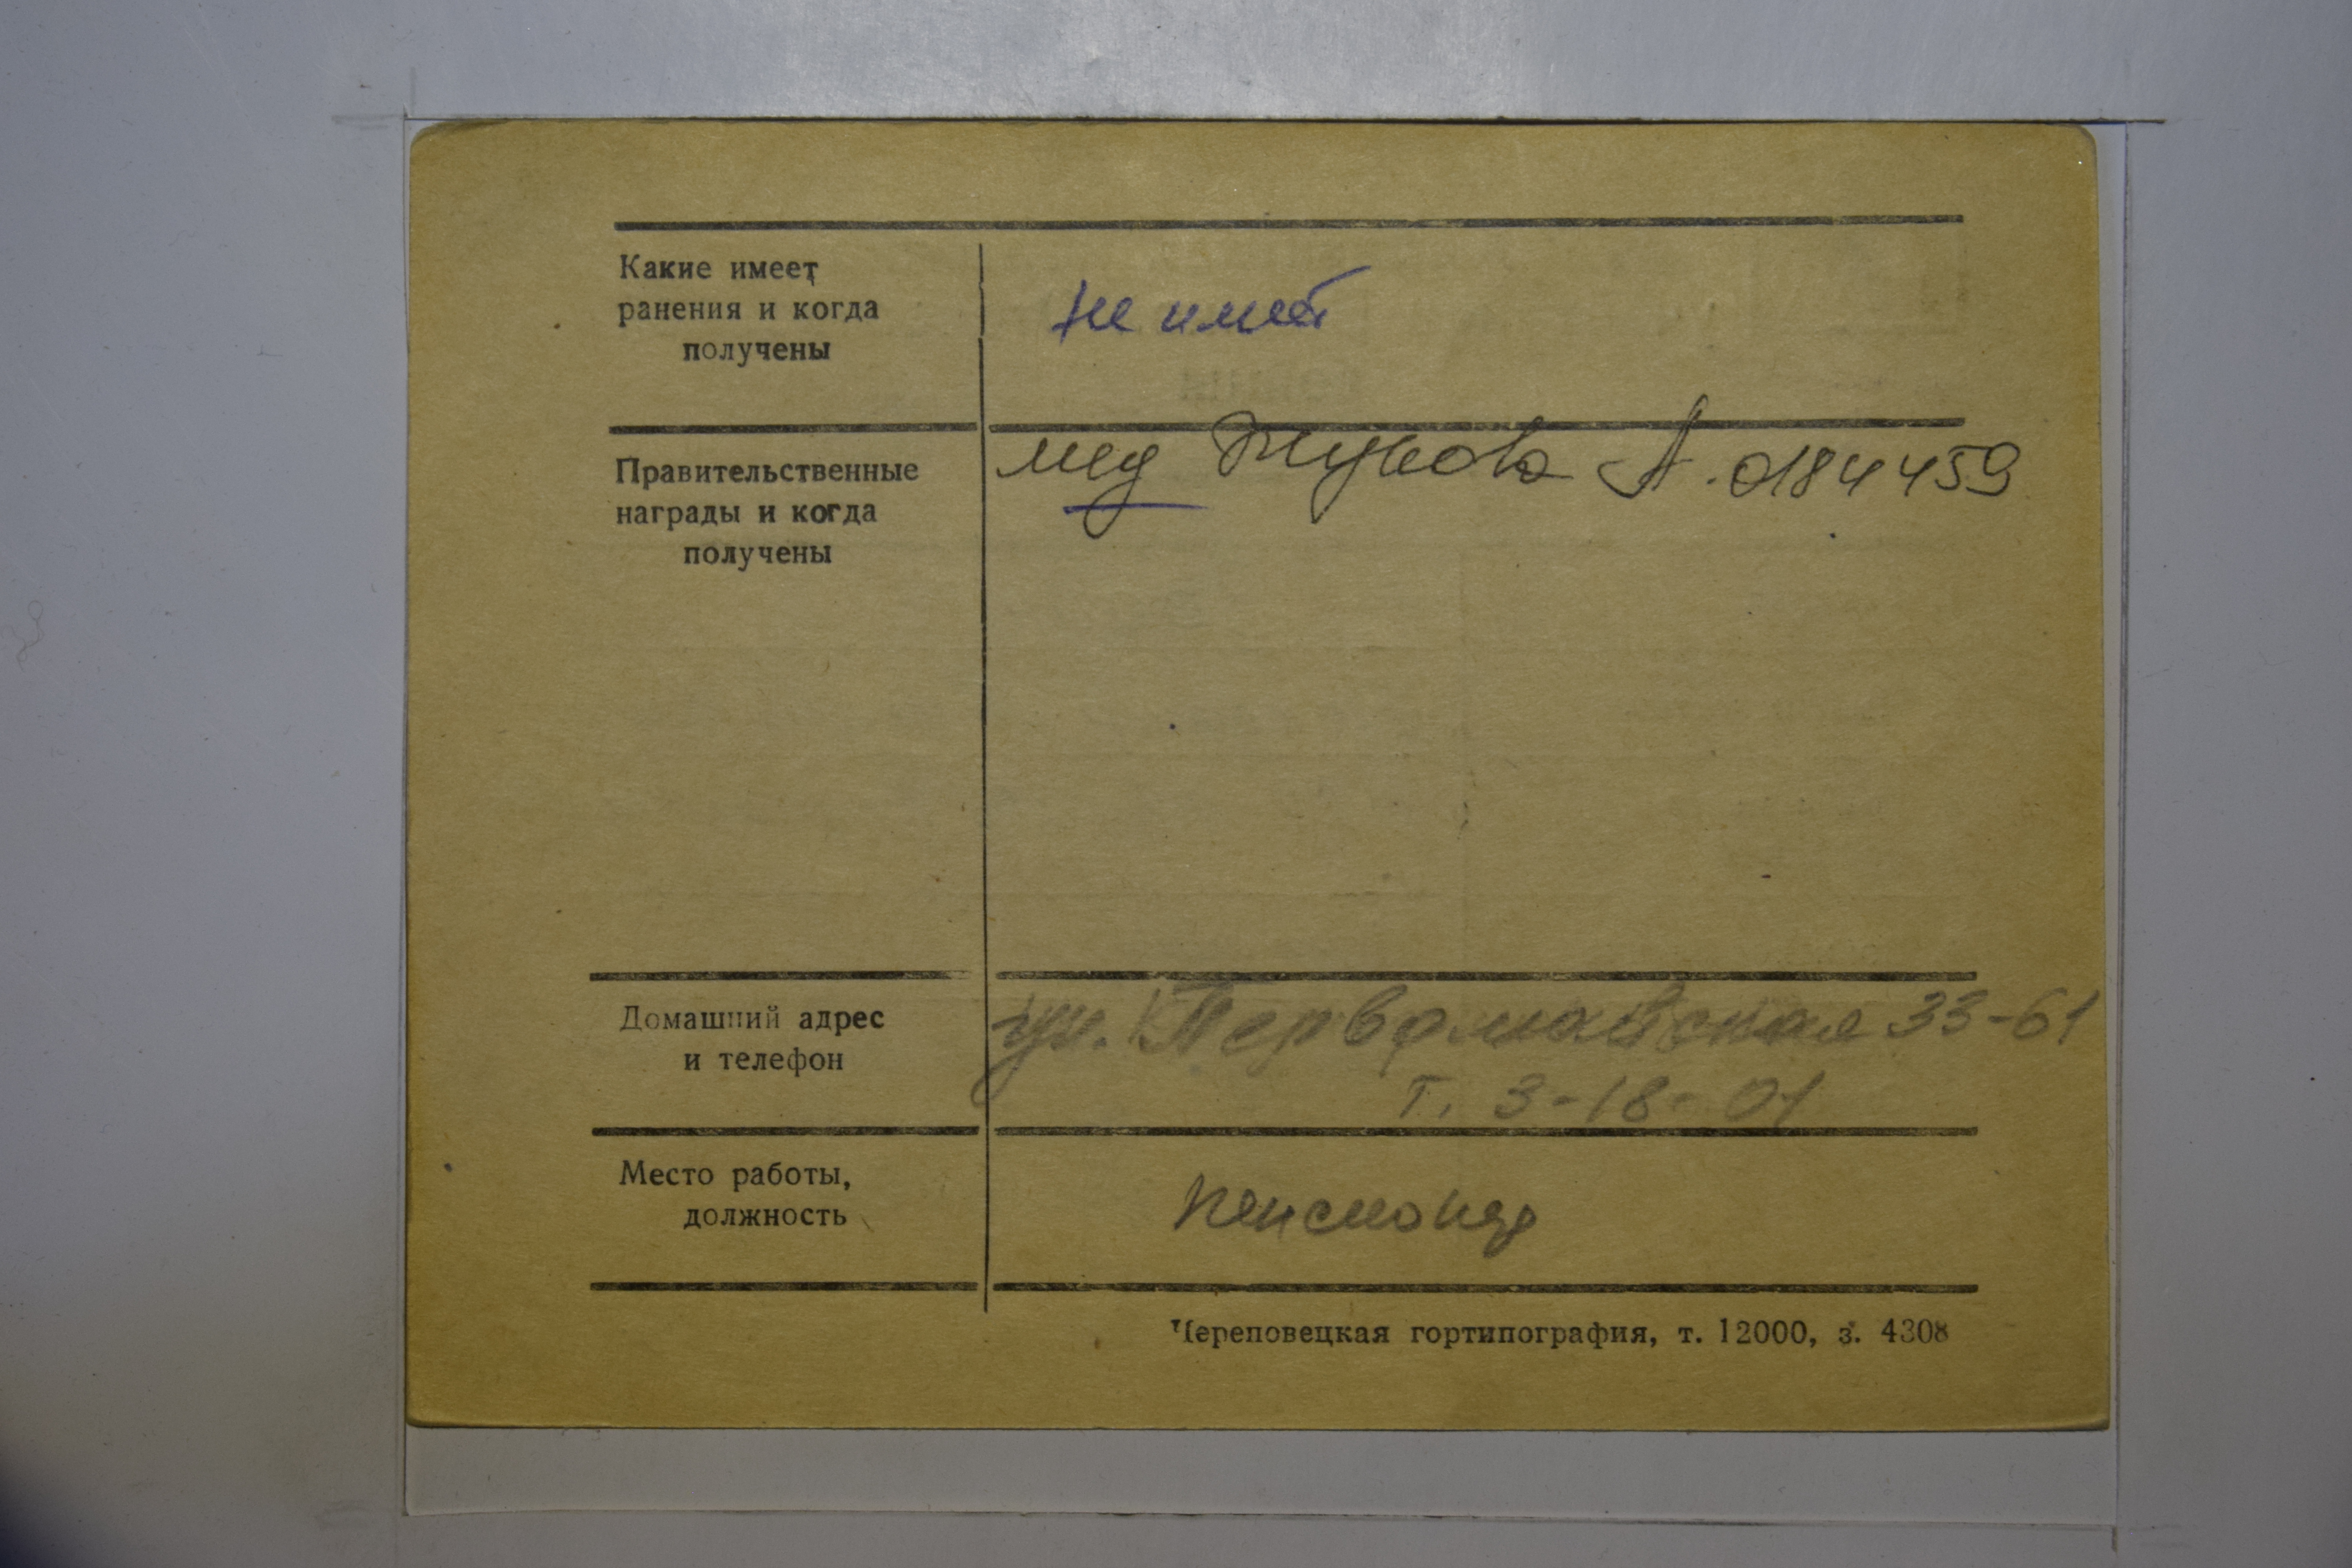 Какие имеет
ранения и когда
получены
не имеет
Правительственные
награды и когда
получены
мед Жукова А. 0184459
Домашний адрес
и телефон
ул. Первомайская 33-61
т. 3-18-01
Место работы,
должность
пенсионер
Череповецкая гортипография, т. 12000, з. 4308